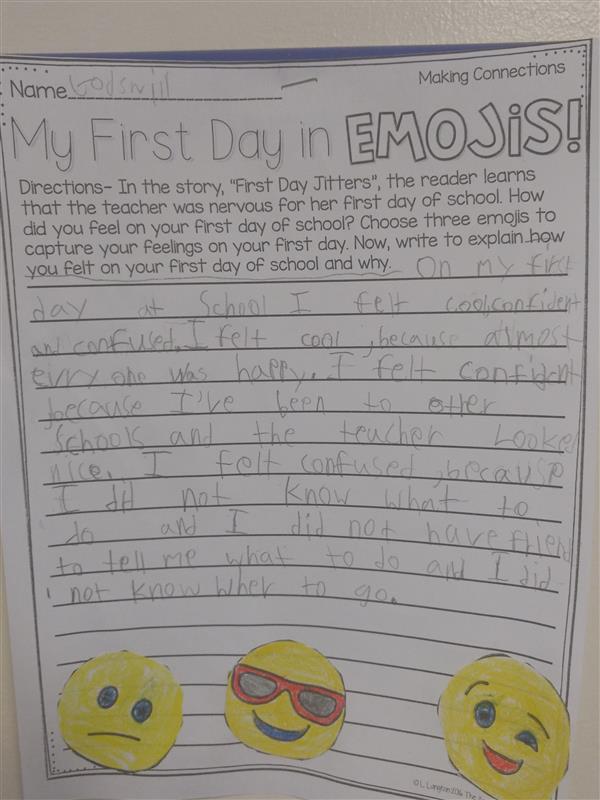 Making Connections
Name Godswill
My First Day in EMOJiS!
Directions- In the story, "First Day Jitters", the reader learns
that the teacher was nervous for her first day of school. How
did you feel on your first day of school? Choose three emojis to
capture your feelings on your first day. Now, write to explain how
you felt on your first day of school and why. On my first
day at School I felt cool,confident
and confused. I felt cool ,because almost
evryone was happy. I felt confident
,because I've been to other
schools and the teacher Looked
nice. I felt confused ,because
I did not know what to
do and I did not have friend
to tell me what to do and I did
not know wher to go.
© L. Langton 2016 The